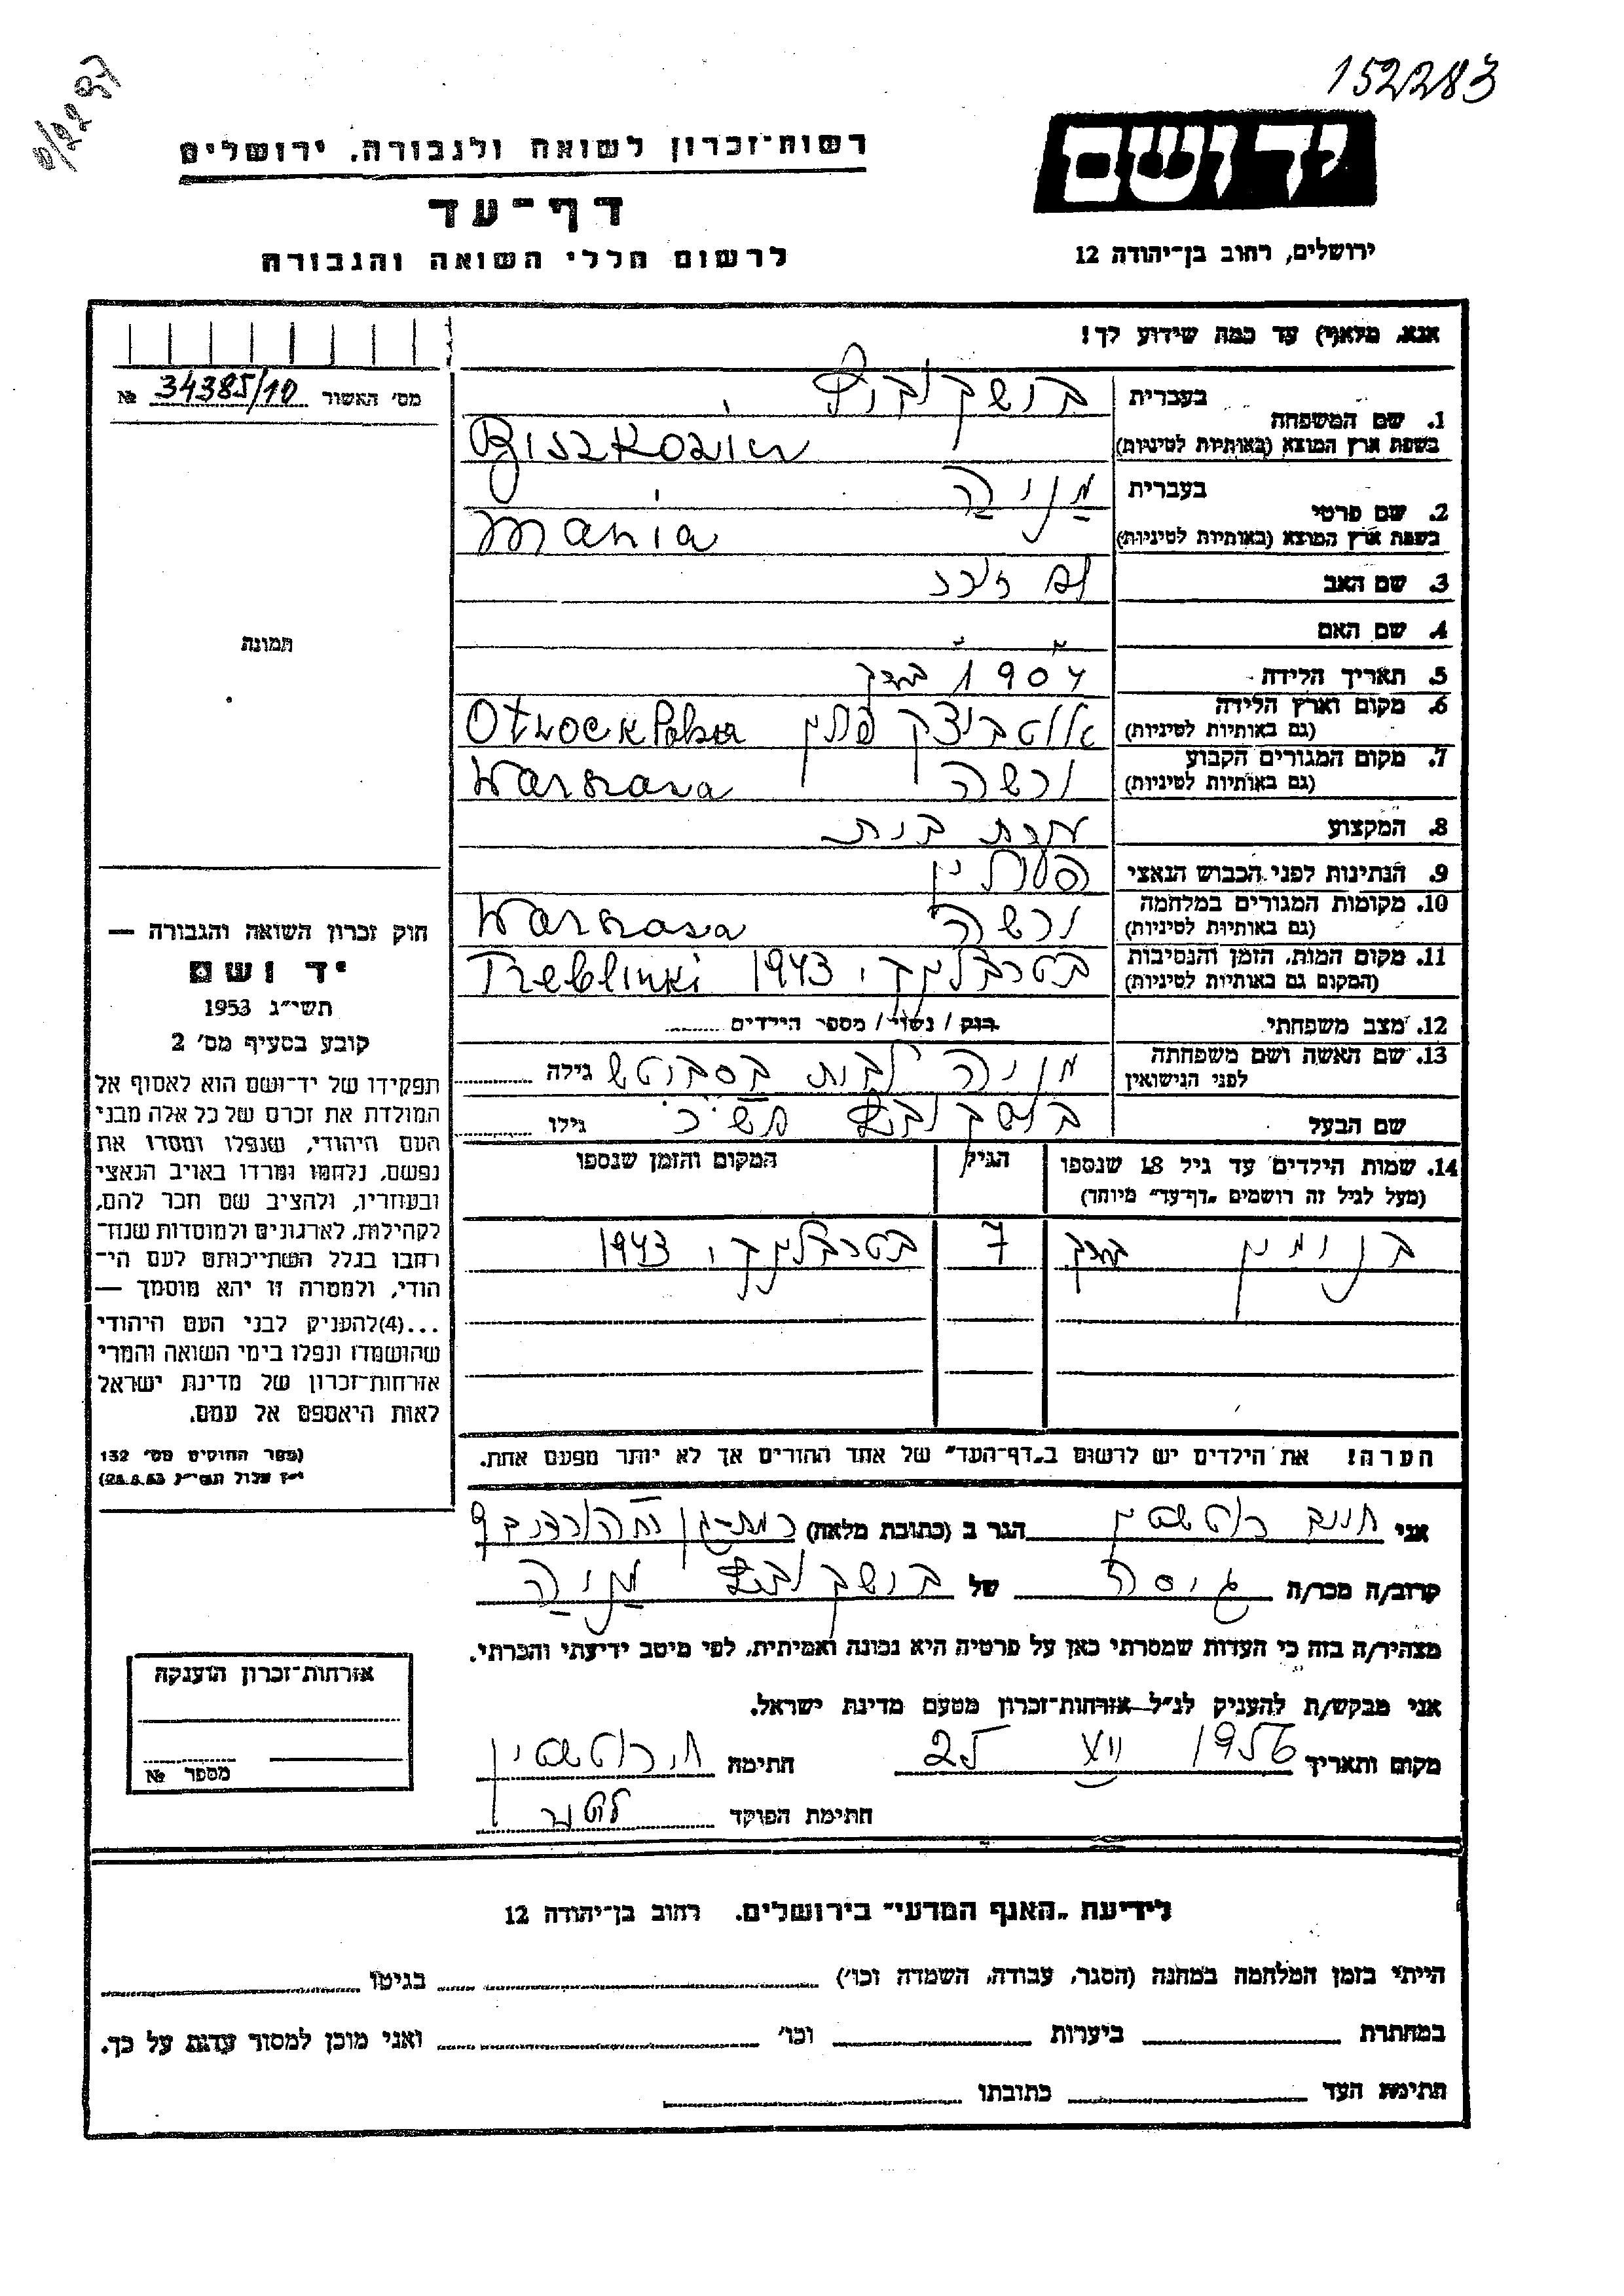 152283
רשות־זכרון לשואה ולגבורה. ירושלים
יד ושם
דף־עד
לרשום חללי השואה והגבורה
ירושלים, רחוב בן־יהודה 12
אנא, מלא(י) עד כמה שידוע לך!
מס׳ האשור 34385/10 №
1. שם המשפחה
בעברית בושקוביץ
בשפת ארץ המוצא (באותיות לטיניות)
2. שם פרטי
בעברית מַניַה
בשפת ארץ המוצא (באותיות לטיניות) Mania
3. שם האב
4. שם האם
תמונה
5. תאריך הלידה 1904 בערך
6. מקום וארץ הלידה
(גם באותיות לטיניות) Otwock
7. מקום המגורים הקבוע
(גם באותיות לטיניות) ורשה
8. המקצוע עקרת בית
9. הנתינות לפני הכבוש הנאצי
10. מקומות המגורים במלחמה
(גם באותיות לטיניות) ורשה
11. מקום המות, הזמן והנסיבות
(המקום גם באותיות לטיניות) בטרבלינקי 1943 Treblinki
12. מצב משפחתי רווק / נשוי / מספר הילדים
13. שם האשה ושם משפחתה
לפני הנישואין מניה לבית גילה
שם הבעל גילו
14. שמות הילדים עד גיל 18 שנספו
(מעל לגיל זה רושמים „דף־עד״ מיוחד)
הגיל
המקום והזמן שנספו
בנימין בערך 7 בטרבלינקי 1943
הערה! את הילדים יש לרשום ב„דף־העד״ של אחד ההורים אך לא יותר מפעם אחת.
חוק זכרון השואה והגבורה —
יד ושם
תשי״ג 1953
קובע בסעיף מס׳ 2
תפקידו של יד־ושם הוא לאסוף אל
המולדת את זכרם של כל אלה מבני
העם היהודי, שנפלו ומסרו את
נפשם, נלחמו ומרדו באויב הנאצי
ובעוזריו, ולהציב שם וזכר להם,
לקהילות, לארגונים ולמוסדות שנח־
רחבו בגלל השתייכותם לעם הי־
הודי, ולמטרה זו יהא מוסמך —
...(4)להעניק לבני העם היהודי
שהושמדו ונפלו בימי השואה והמרי
אזרחות־זכרון של מדינת ישראל
לאות היאספם אל עמם.
(ספר החוקים מס׳ 132
י״ז אלול תשי״ג 28.8.53)
אני הגר ב (כתובת מלאה) רמת־גן
קרוב/ה מכר/ה גיסה של בושקוביץ מַניַה
מצהיר/ה בזה כי העדות שמסרתי כאן על פרטיה היא נכונה ואמיתית, לפי מיטב ידיעתי והכרתי.
אני מבקש/ת להעניק לנ״ל אזרחות־זכרון מטעם מדינת ישראל.
מקום ותאריך 1956 25 חתימה
חתימת הפוקד
אזרחות־זכרון הוענקה
מספר №
לידיעת „האגף המדעי״ בירושלים. רחוב בן־יהודה 12
הייתי בזמן המלחמה במחנה (הסגר, עבודה, השמדה וכו׳) בגיטו
במחתרת ביערות וכו׳ ואני מוכן למסור עדות על כך.
חתימת העד כתובתו